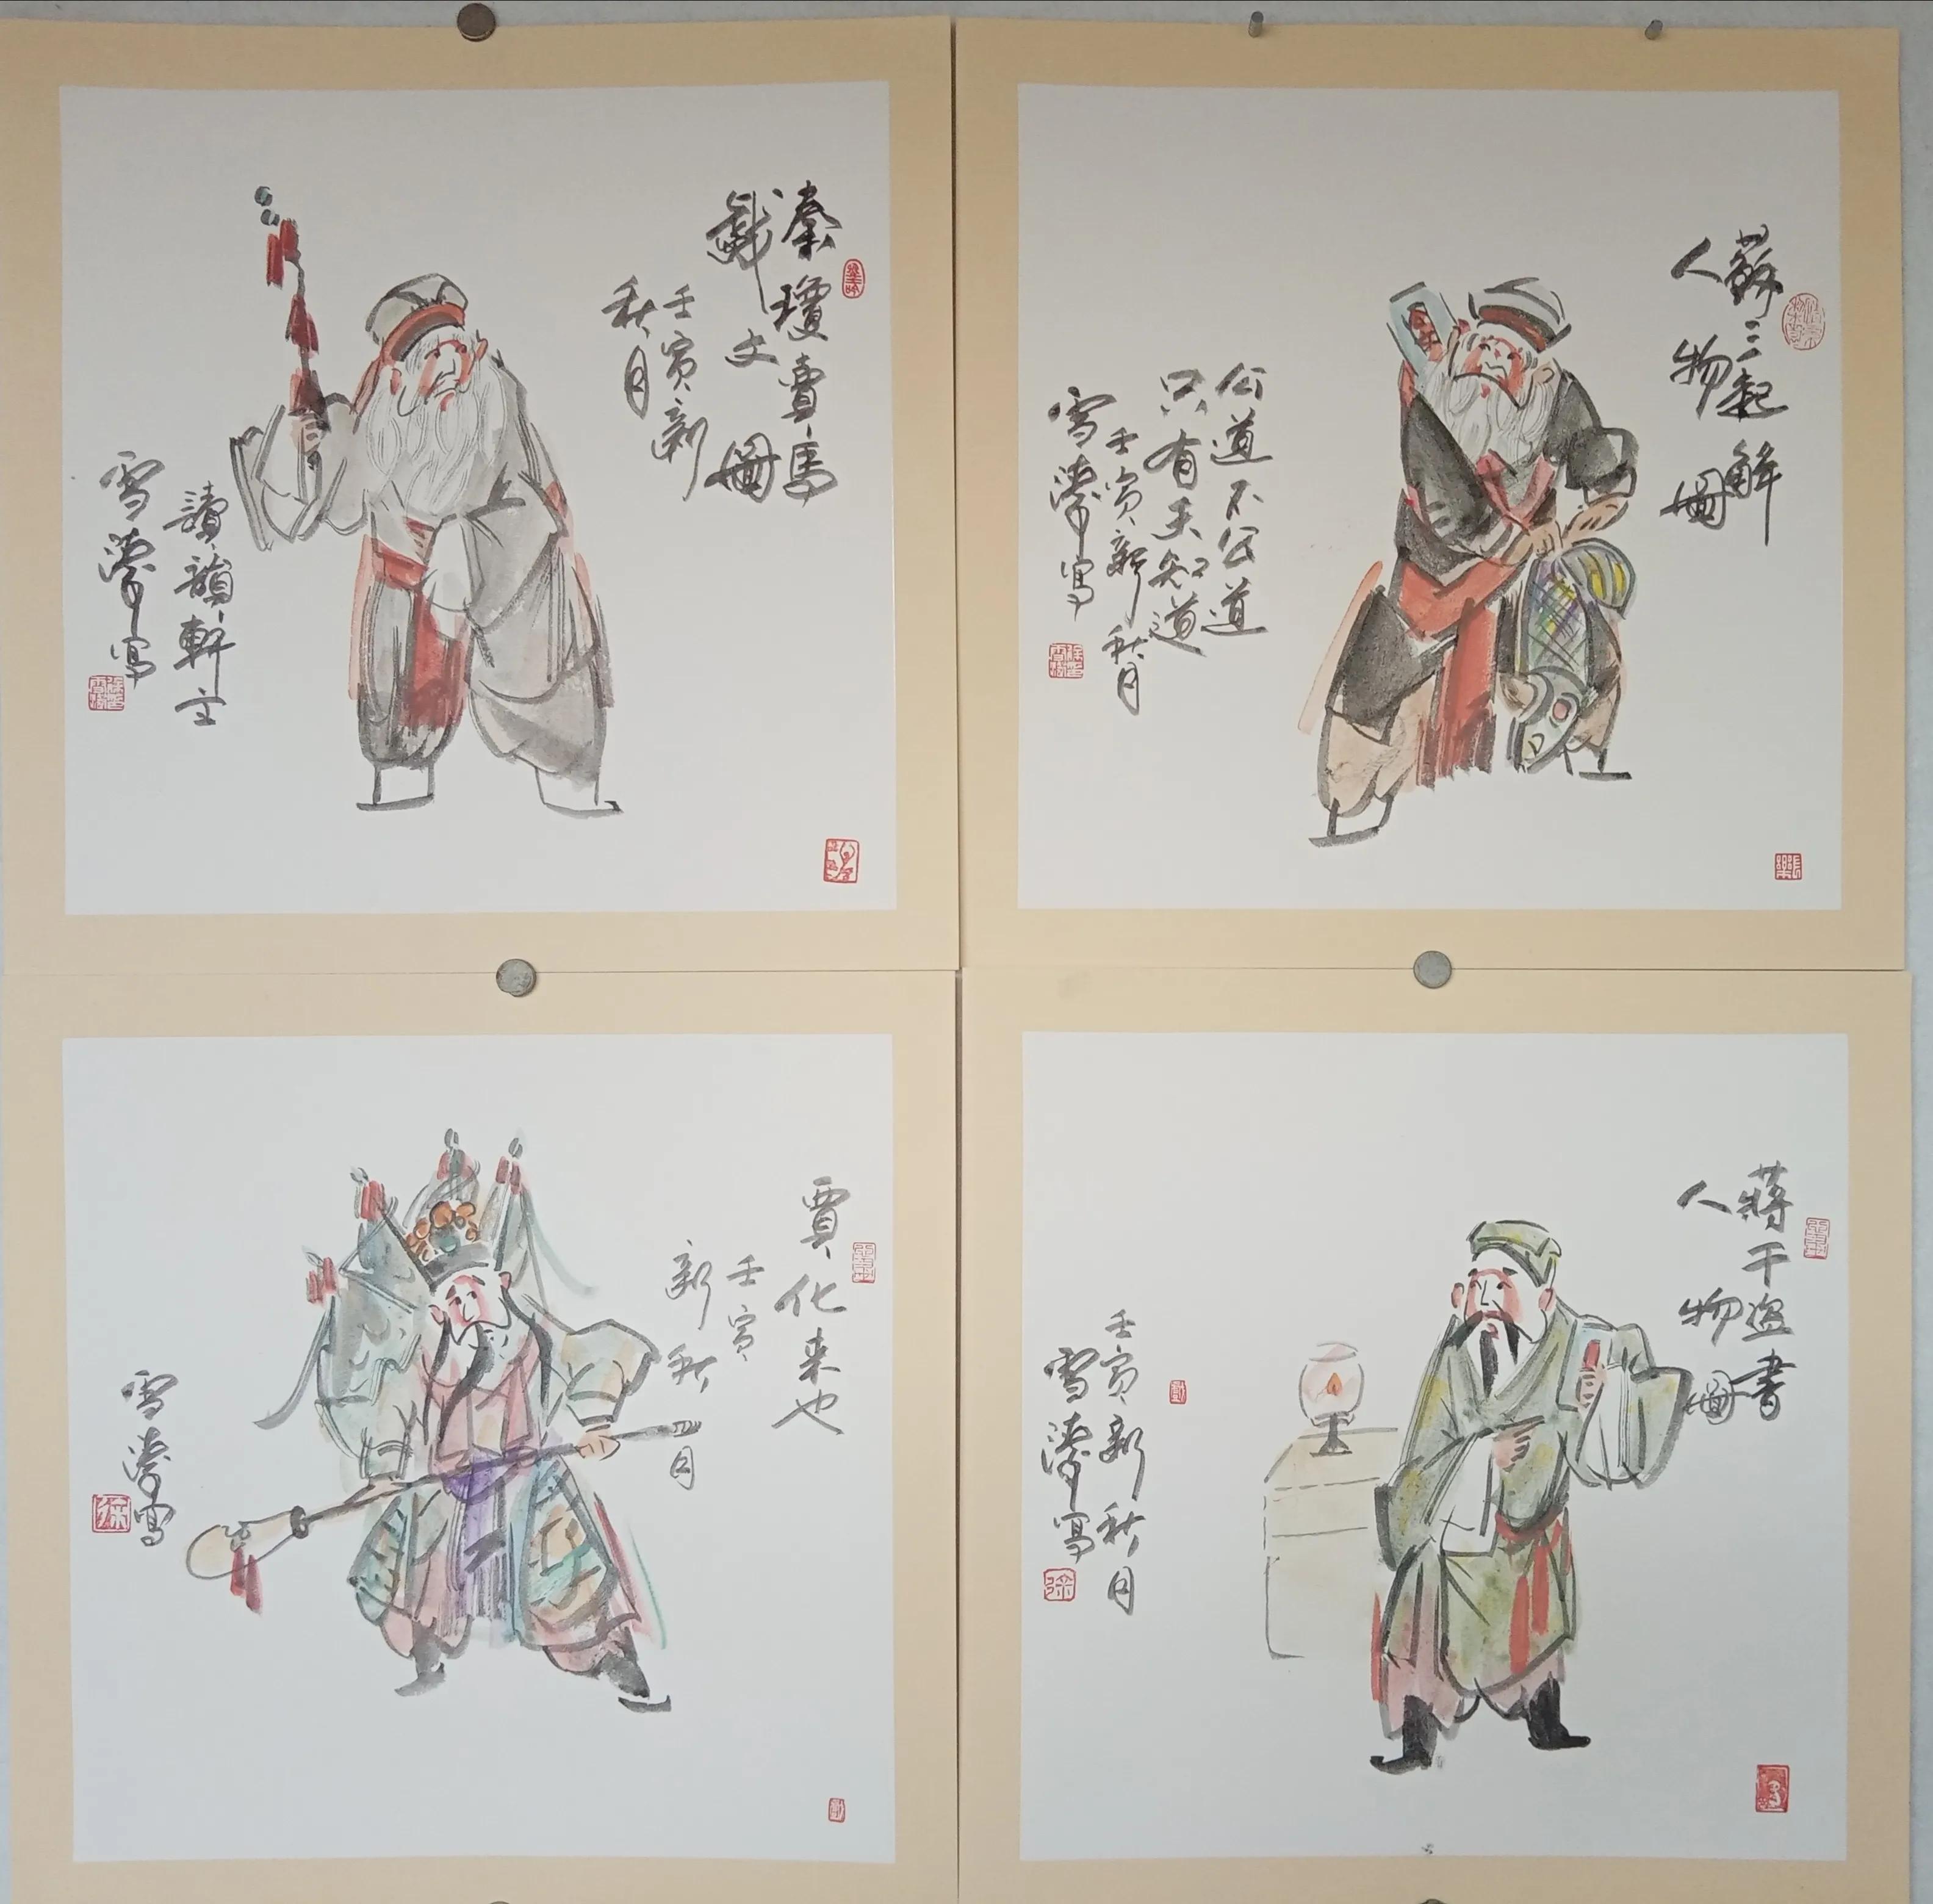 秦瓊賣馬
戲文圖
壬寅新
秋月
讀韻軒主
雪濤寫
蘇三起解
人物圖
公道不公道
只有天知道
壬寅新秋月
雪濤寫
賈化来也
壬寅
新秋月
雪濤寫
蔣干盗書
人物圖
壬寅新秋月
雪濤寫